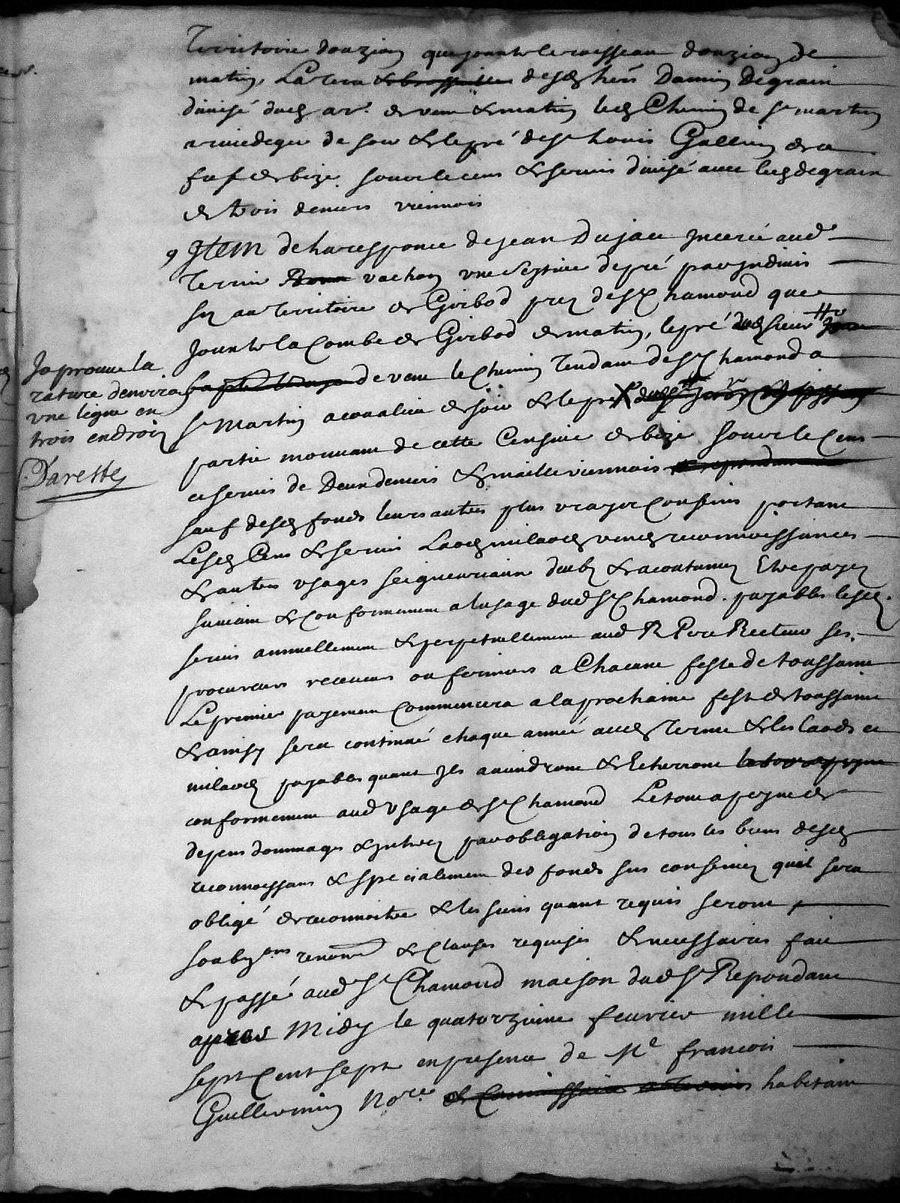 Territoire douzion que jouxte le ruisseau douzion de
matin, La terre desd hers Damien Degrain
divisé dud ar. de vent & matin led Chemin de st martin
a rivedegier de soir & le pré de sr Louis Gallien de
de bize. soubz le cens & servis divisé avec led degrain
de trois deniers viennois
9 Item de la responce de Jean Dujast Incerée aud
Terrier vachon une Septive de pré
scize au Territoire de Girbod prez de St Chamond que
Jouxte la Combe de Girbod de matin, le pré dud sieur
Japrouve la
rature denviron
une ligne en
trois endroitz
Darette
de vent le chemin Tendant de St Chamond a
St Martin acoualieu de soir & le pré
partie mouvant de cette Censive de bize soubz le Cens
et servis de Deux deniers & maille viennois
sauf desd fonds leurs autres plus vrayes Confins portant
Lesd Cens & servis Laods milaods reconnoissances
& autres usages seigneuriaux deubz & acoutumez Etre payez
suivant & conformement a lusage dud St Chamond. payables lesd.
servis annuellement & perpetuellement aud R Pere Recteur ses
procureurs receveurs ou fermiers a Chacune feste de toussaint
Le premier payement commencera a la prochaine feste de toussaint
& ainsy sera continué chaque année aud Terme & les laods et
milaods payables quant ils aviendront & Echerront
conformement aud usage de St Chamond Le tout a peyne de
depens dommages & interez par obligation de tous les biens desd
reconnoissans & specialement des fonds sus confinez quil sera
obligé de reconnoitre & les siens quant requis seront
soubz renon & clauses requises & necessaires fait
& passé aud St Chamond maison dud Sr Repondant
apres Midy le quatorzieme fevrier mille
sept Cent sept en presence de Me francois
Guillermin Nore habitant